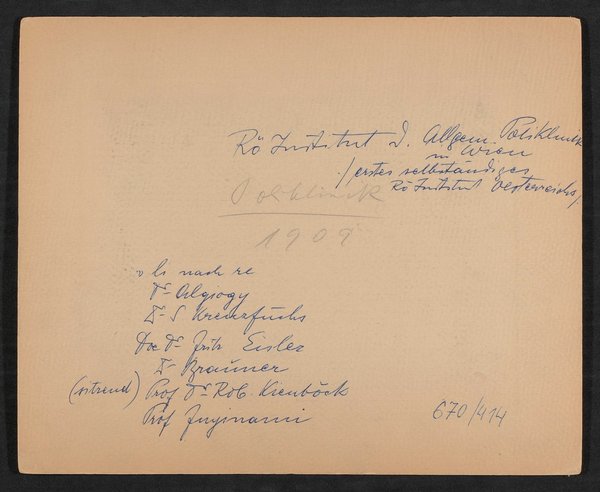 Rö Institut d. Allgem. Poliklinik
in Wien
/ erstes selbständiges
Rö Institut Oesterreichs /
Poliklinik
1909
v li nach re
Dr Algiogy
Dr S Kreuzfuchs
Doc Dr Fritz Eisler
Dr Brauner
(sitzend) Prof Dr Rob. Kienböck
Prof
670/414